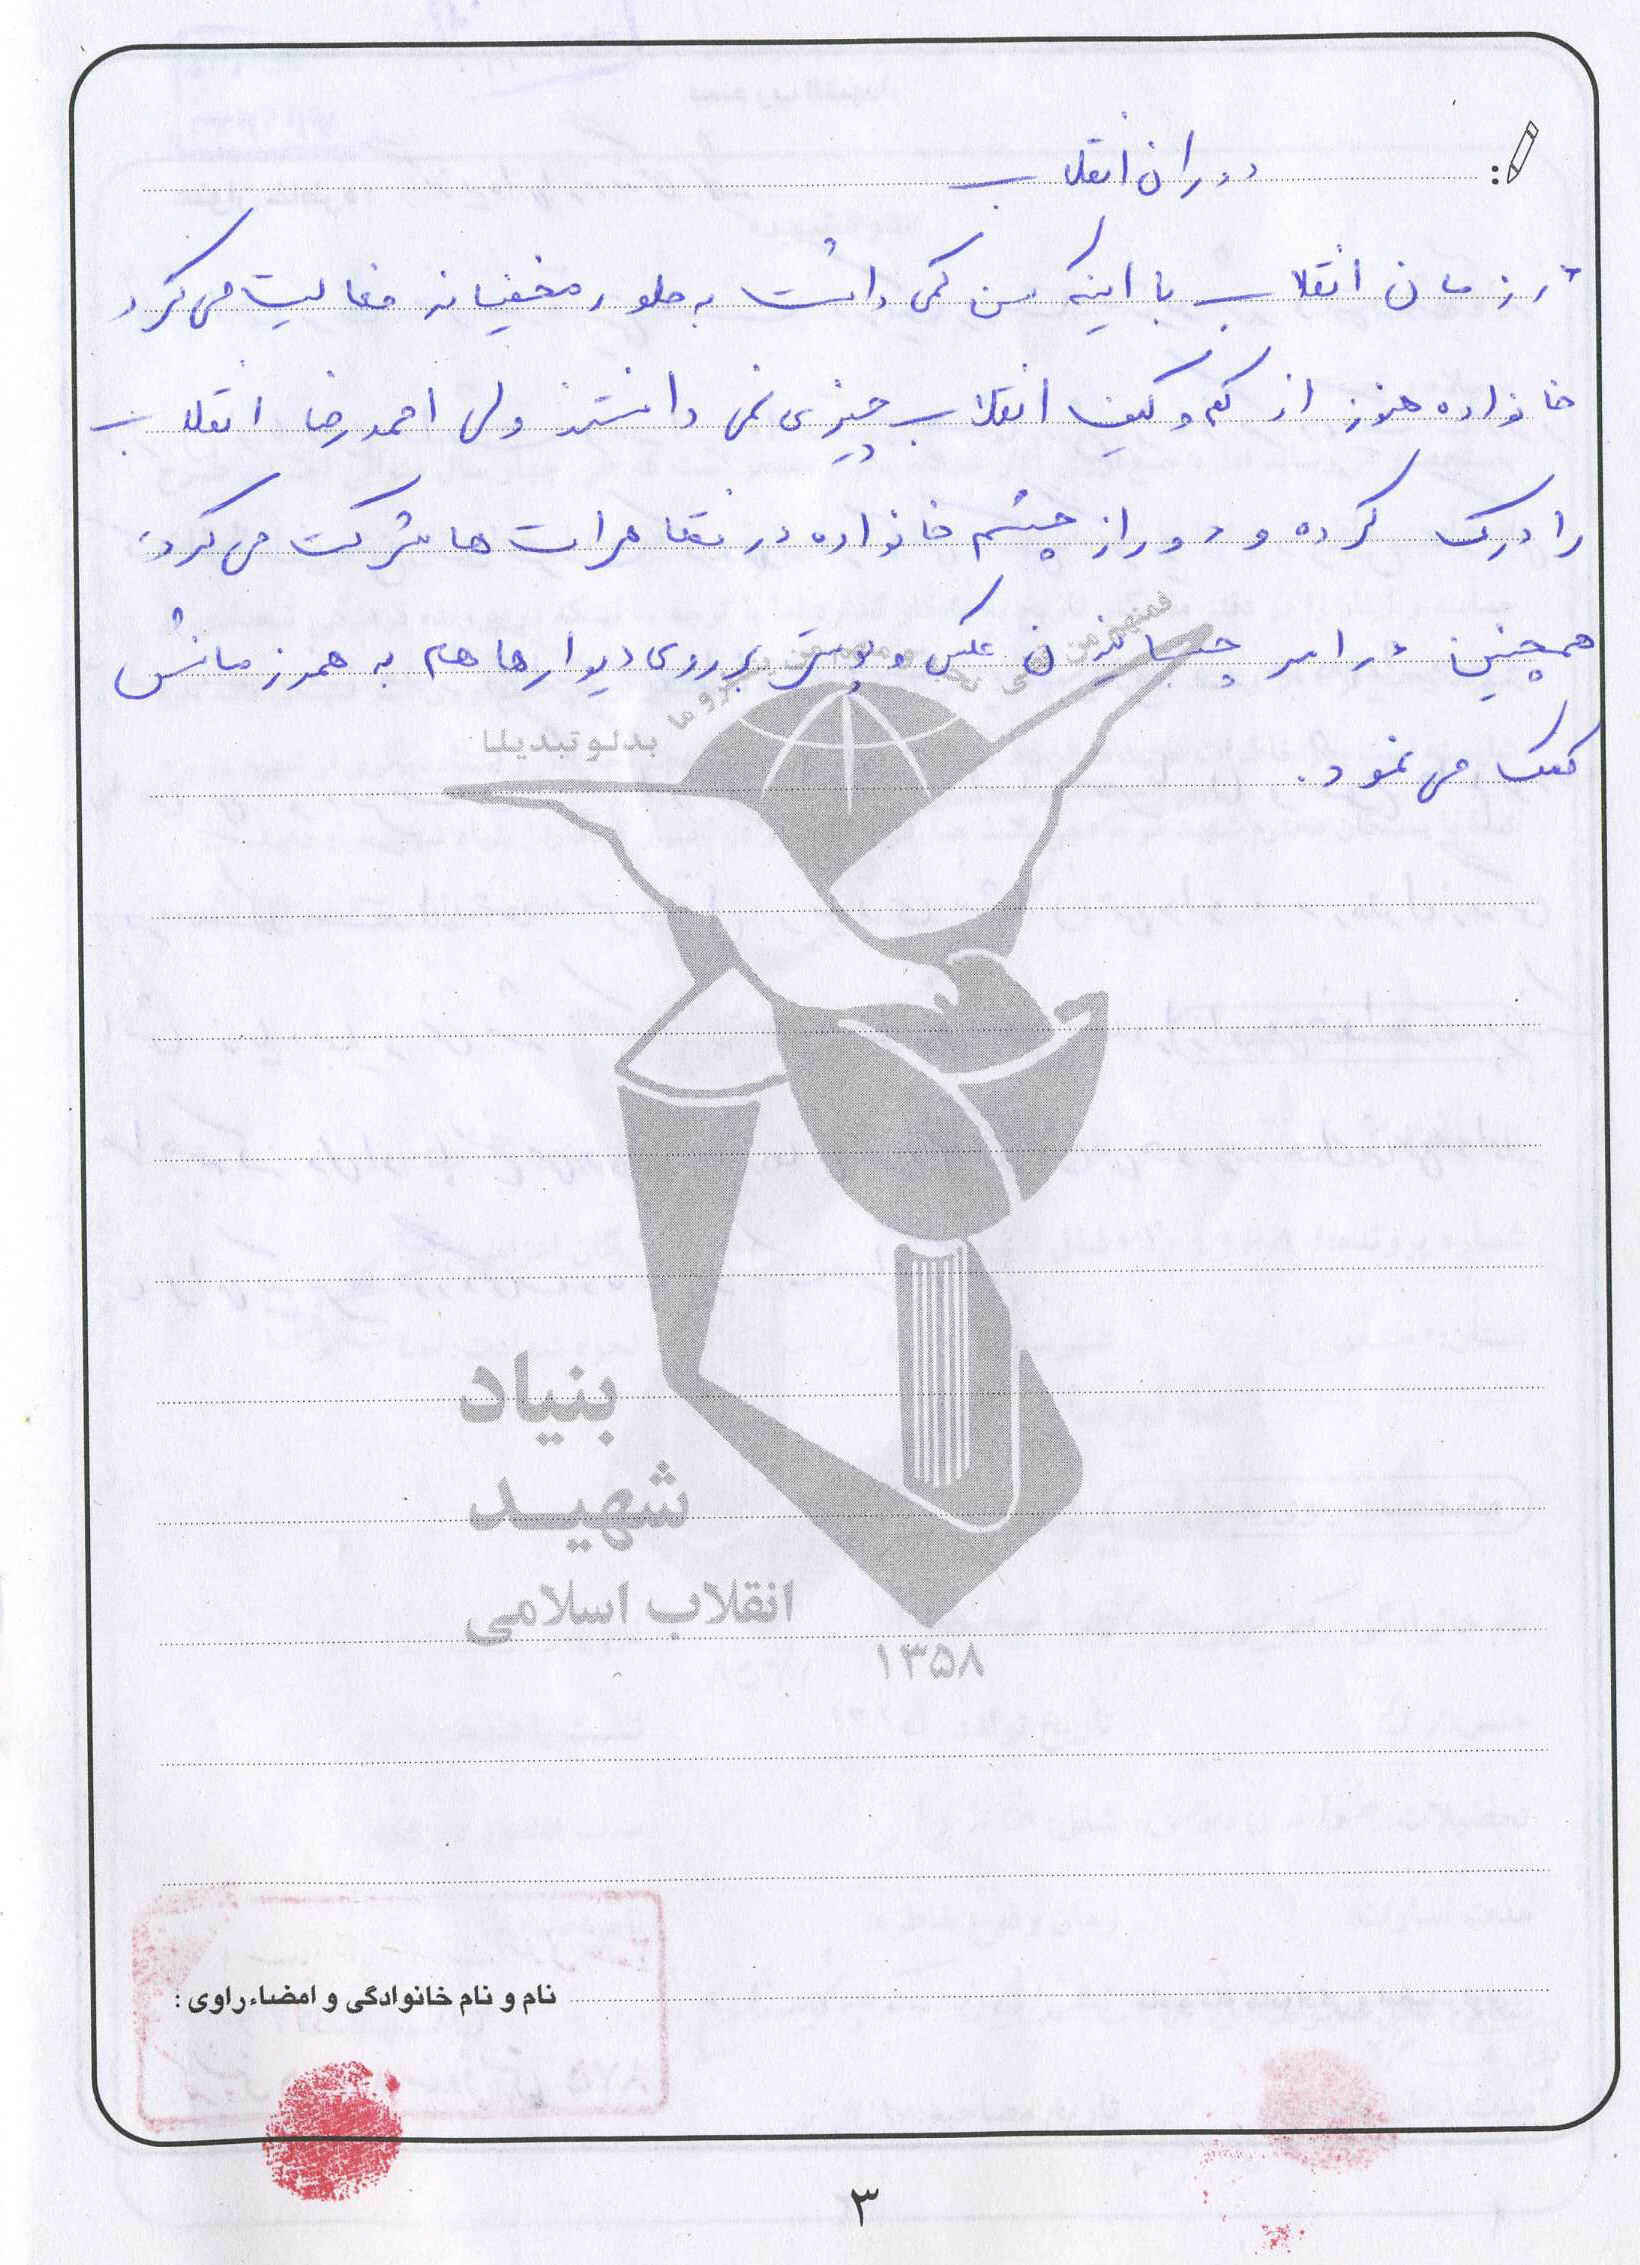 دوران انقلاب
در زمان انقلاب با اینکه سن کمی داشت به طور مخفیانه فعالیت می کرد
خانواده هنوز از کم و کیف انقلاب چیزی نمی دانستند ولی احمدرضا انقلاب
را درک کرده و دور از چشم خانواده در تظاهرات ها شرکت می کرد.
همچنین در امر چسباندن عکس و پوستر بر روی دیوارها هم به همرزمانش
کمک می نمود.
بدلو تبدیلا
بنیاد
شهید
انقلاب اسلامی
۱۳۵۸
نام و نام خانوادگی و امضاء راوی :
۳